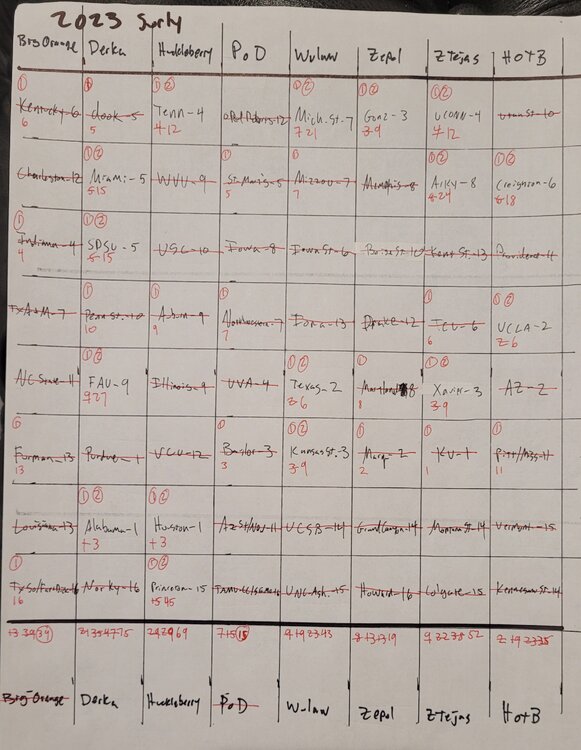 2023 Surly
Big Orange Derka Huckleberry PoD Wulaw Zepol ZTejas HOTB
① ① ①② ①② ①② ①②
Kentucky-6 Cook-5 Tenn-4 Mich. St.-7 Gonz-3 UCONN-4 Utah St-10
6 5 4 12 7 21 3 9 4 12
①② ① ① ①② ①②
Charleston-12 Miami-5 WVU-9 St. Marys-5 Mizzou-7 Memphis-8 Arky-8 Creighton-6
5 15 5 7 8 24 6 18
① ①②
Indiana-4 SDSU-5 USC-10 Iowa-8 Iowa St-6 Boise St-10 Kent St.-13 Providence-11
4 5 15
① ① ① ① ①②
TxA&M-7 Penn St.-10 Auburn-9 Northwestern-7 Iona-13 Drake-12 TCU-6 UCLA-2
10 9 7 6 2 6
①② ①② ① ①②
NC State-11 FAU-9 Illinois-9 UVA-4 Texas-2 Maryland-8 Xavier-3 AZ-2
9 27 2 6 8 3 9
① ① ①② ① ① ①
Furman-13 Purdue-1 VCU-12 Baylor-3 Kansas St.-3 Marq-2 KU-1 Pitt/Miss-11
13 3 3 9 2 1 11
①② ①②
Louisiana-13 Alabama-1 Houston-1 Az St/Nev-11 UCSB-14 Grand Canyon-14 Montana St-14 Vermont-15
+3 +3
① ①②
TxSo/FarDick-16 Nor Ky-16 Princeton-15 UNC-Ash.-15 Howard-16 Colgate-15 Kennesaw St-14
16 +5 45
Big Orange Derka Huckleberry PoD Wulaw Zepol ZTejas HOTB